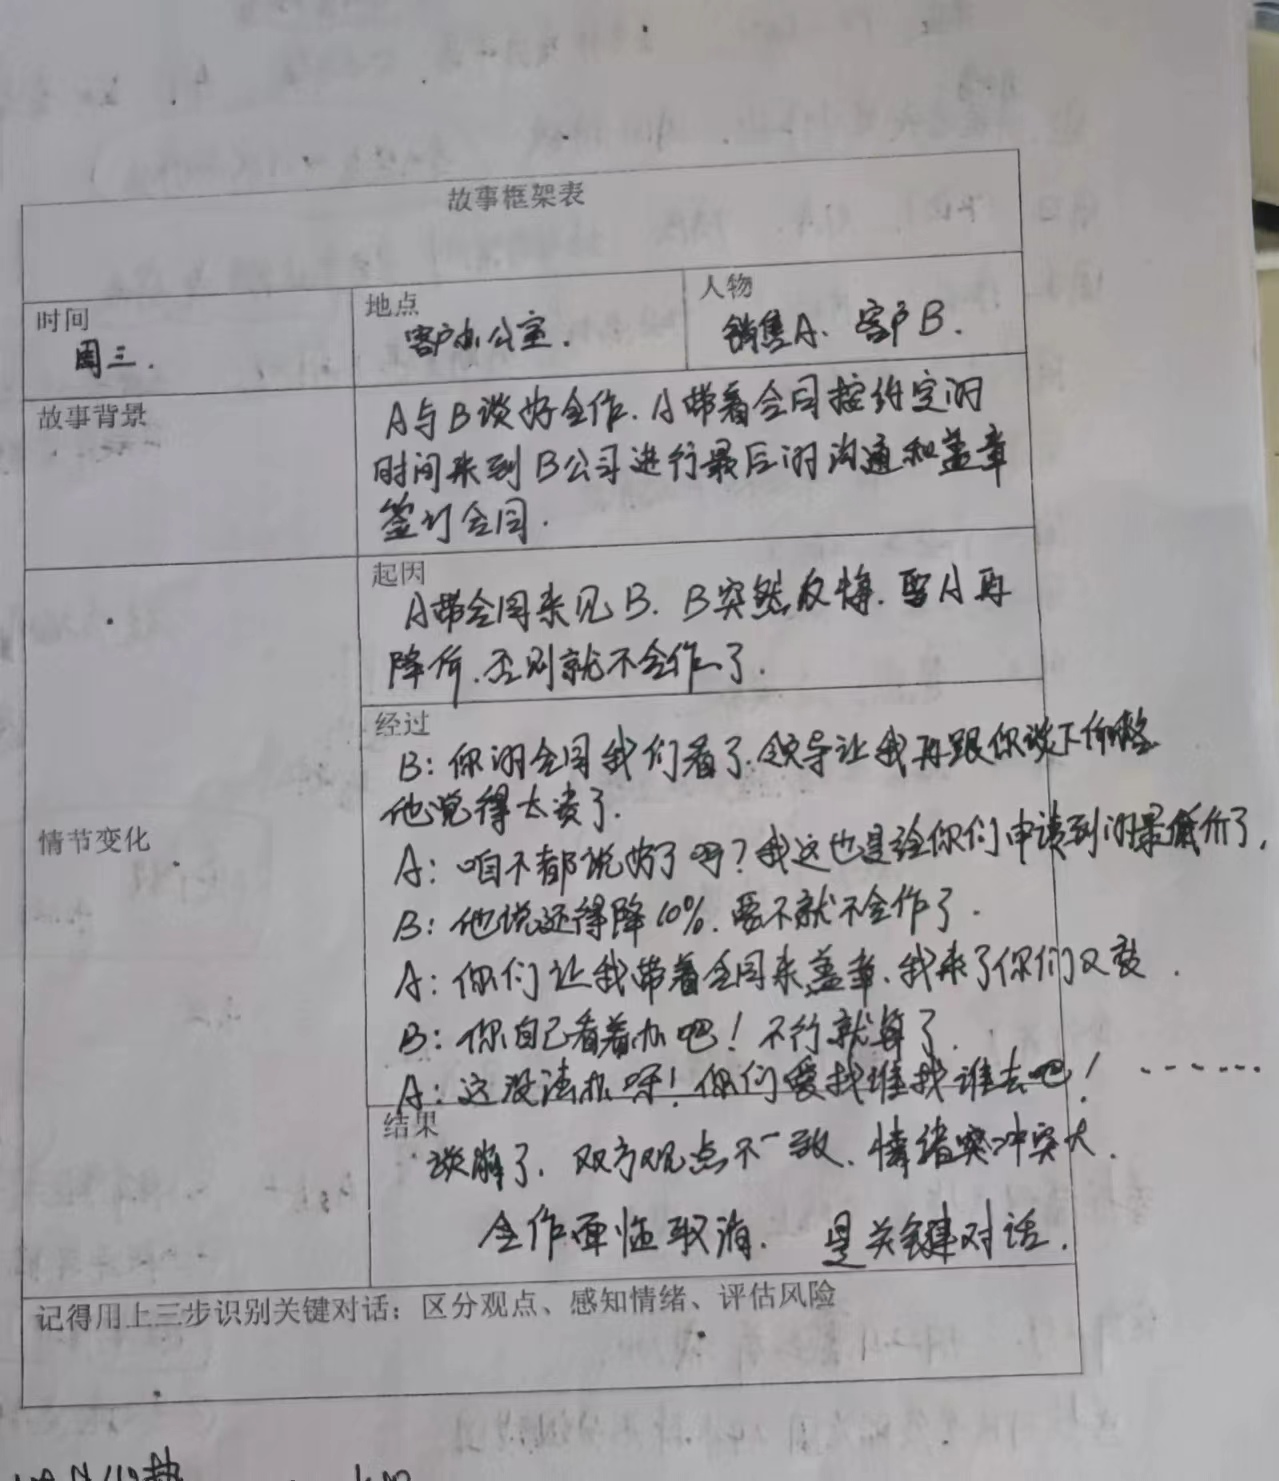 故事框架表
时间
周三.
地点
客户办公室.
人物
销售A、客户B.
故事背景
A与B谈好合作.A带着合同按约定的
时间来到B公司进行最后的沟通和盖章
签订合同.
情节变化
起因
A带合同来见B.B突然反悔.要A再
降价.否则就不合作了.
经过
B:你的合同我们看了.领导让我再跟你谈下价格
他觉得太贵了.
A:咱不都说好了吗?我这也是给你们申请到的最低价了.
B:他说还得降10%.要不就不合作了.
A:你们让我带着合同来盖章.我来了你们又变.
B:你自己看着办吧!不行就算了.
A:这没法办呀!你们爱找谁找谁去吧!.......
结果
谈崩了.双方观点不一致、情绪冲突大.
合作面临取消. 是关键对话.
记得用上三步识别关键对话:区分观点、感知情绪、评估风险